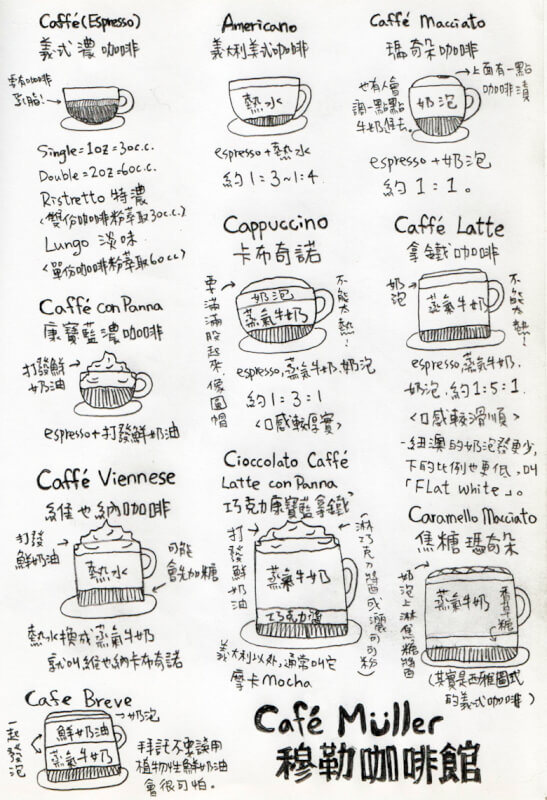 Caffé (Espresso)
義式濃咖啡
要有咖啡
乳脂!
Single=1oz=30c.c.
Double=2oz=60c.c.
Ristretto 特濃
<雙份咖啡粉萃取30c.c.>
Lungo 淡味
<單份咖啡粉萃取60cc>
Americano
義大利美式咖啡
熱水
espresso+熱水
約1:3~1:4
Caffé Macciato
瑪奇朵咖啡
也有人會
調一點點
牛奶進去。
奶泡
上面有一點
咖啡漬
espresso+奶泡
約1:1。
Caffé con Panna
康寶藍濃咖啡
打發鮮
奶油
espresso+打發鮮奶油
Cappuccino
卡布奇諾
要滿滿股起來像圓帽
奶泡
蒸氣牛奶
不能太熱!
espresso,蒸氣牛奶,奶泡
約1:3:1
<口感較厚實>
Caffé Latte
拿鐵咖啡
奶泡
蒸氣牛奶
不能太熱!
espresso蒸氣牛奶,
奶泡,約1:5:1.
<口感較滑順>
紐澳的奶泡發更少,
下的比例也更低,叫
「Flat white」。
Caffé Viennese
維也納咖啡
打發
鮮奶油
熱水
可能
會先加糖
熱水換成蒸氣牛奶
就叫維也納卡布奇諾
Cioccolato Caffé
Latte con Panna
巧克力康寶藍拿鐵
打發鮮奶油
蒸氣牛奶
巧克力醬
(淋巧克力醬或灑可可粉)
義大利以外,通常叫它
摩卡Mocha
Caramello Macciato
焦糖瑪奇朵
奶泡上淋焦糖醬
蒸氣牛奶
香草糖
(其實是西雅圖式
的義式咖啡)
Cafe Breve
一起發泡
奶泡
鮮奶油
蒸氣牛奶
拜託不要誤用
植物性鮮奶油
會很可怕。
Café Müller
穆勒咖啡館